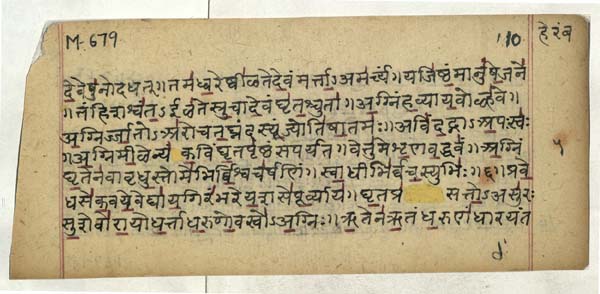 M-679 110 हेरंब
देवेषुनोदधत्॥तमध्वरेष्वीळतेदेवंमर्त्ताऽअमर्त्यं॥यजिष्ठंमानुषेजने
॥तंहिशश्वंतऽईळतेस्रुचादेवंघृतश्चुता॥अग्निंहव्यायवोळ्हवे॥
अग्निर्ज्जातोऽअरोचतघ्नन्दस्यूंज्योतिषातमः॥अविंदद्गाऽअपःस्वः
॥अग्निमीळेन्यंकविंघृतपृष्ठंसपर्यत॥वेतुमेशृणवद्धवं॥अग्निं
घृतेनवावृधुस्तोमेभिर्विश्वचर्षणिं॥स्वाधीभिर्वचस्युभिः॥६॥प्रवे
धसेकवयेवेद्यायगिरंभरेयशसेपूर्व्याय॥घृतप्र सत्तोऽअसुरः
सुशेवोरायोधर्त्ताधरुणोवस्वोऽअग्निः॥ऋतेनऋतंधरुणंधारयंत